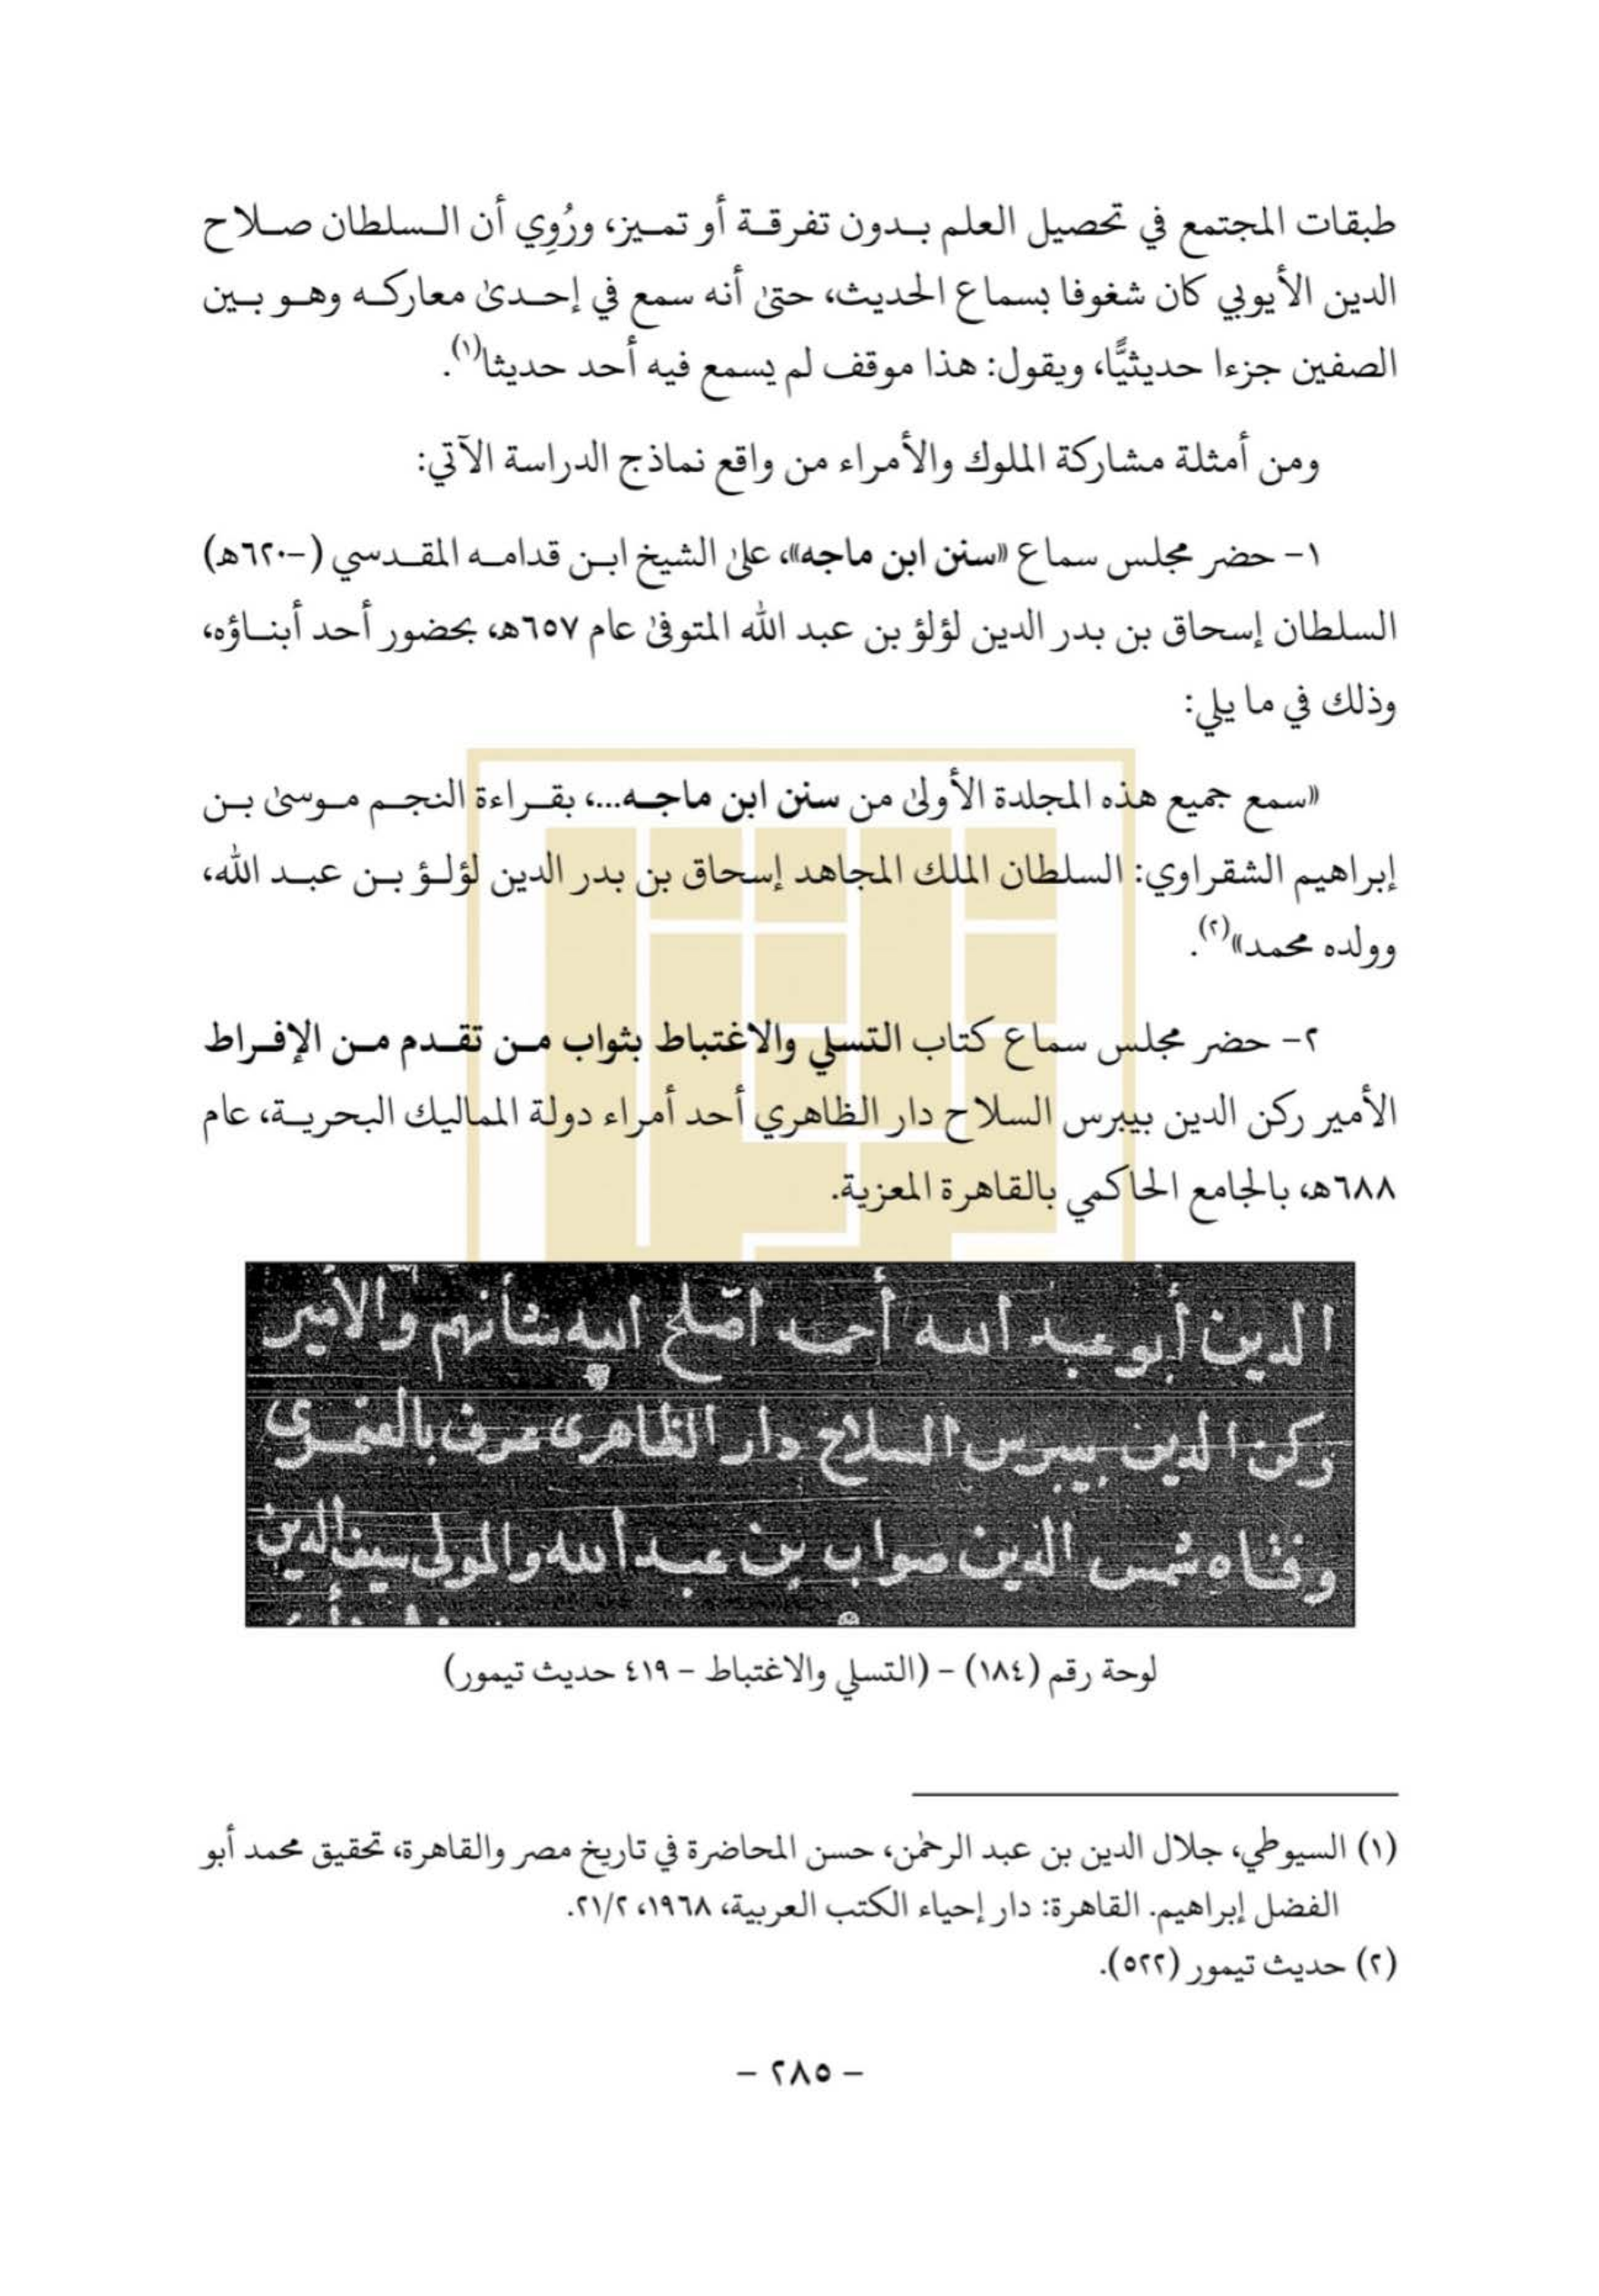 طبقات المجتمع في تحصيل العلم بدون تفرقة أو تميز، ورُوِي أن السلطان صلاح
الدين الأيوبي كان شغوفا بسماع الحديث، حتىٰ أنه سمع في إحدىٰ معاركه وهو بين
الصفين جزءا حديثيًّا، ويقول: هذا موقف لم يسمع فيه أحد حديثا(١).
ومن أمثلة مشاركة الملوك والأمراء من واقع نماذج الدراسة الآتي:
١- حضر مجلس سماع «سنن ابن ماجه»، علىٰ الشيخ ابن قدامه المقدسي (-٦٢٠هـ)
السلطان إسحاق بن بدر الدين لؤلؤ بن عبد الله المتوفىٰ عام ٦٥٧هـ، بحضور أحد أبناؤه،
وذلك في ما يلي:
«سمع جميع هذه المجلدة الأولىٰ من سنن ابن ماجه...، بقراءة النجم موسىٰ بن
إبراهيم الشقراوي: السلطان الملك المجاهد إسحاق بن بدر الدين لؤلؤ بن عبد الله،
وولده محمد»(٢).
٢- حضر مجلس سماع كتاب التسلي والاغتباط بثواب من تقدم من الإفراط
الأمير ركن الدين بيبرس السلاح دار الظاهري أحد أمراء دولة المماليك البحرية، عام
٦٨٨هـ، بالجامع الحاكمي بالقاهرة المعزية.
الدين أبو عبد الله أحمد اصلح الله شأنهم والأمير
ركن الدين بيبرس السلاح دار الظاهرى عرف
وفتاه شمس الدين صواب بن عبد الله والمولى سيف الدين
لوحة رقم (١٨٤) - (التسلي والاغتباط - ٤١٩ حديث تيمور)
(١) السيوطي، جلال الدين بن عبد الرحمٰن، حسن المحاضرة في تاريخ مصر والقاهرة، تحقيق محمد أبو
الفضل إبراهيم. القاهرة: دار إحياء الكتب العربية، ١٩٦٨، ٢١/٢.
(٢) حديث تيمور (٥٢٢).
- ٢٨٥ -